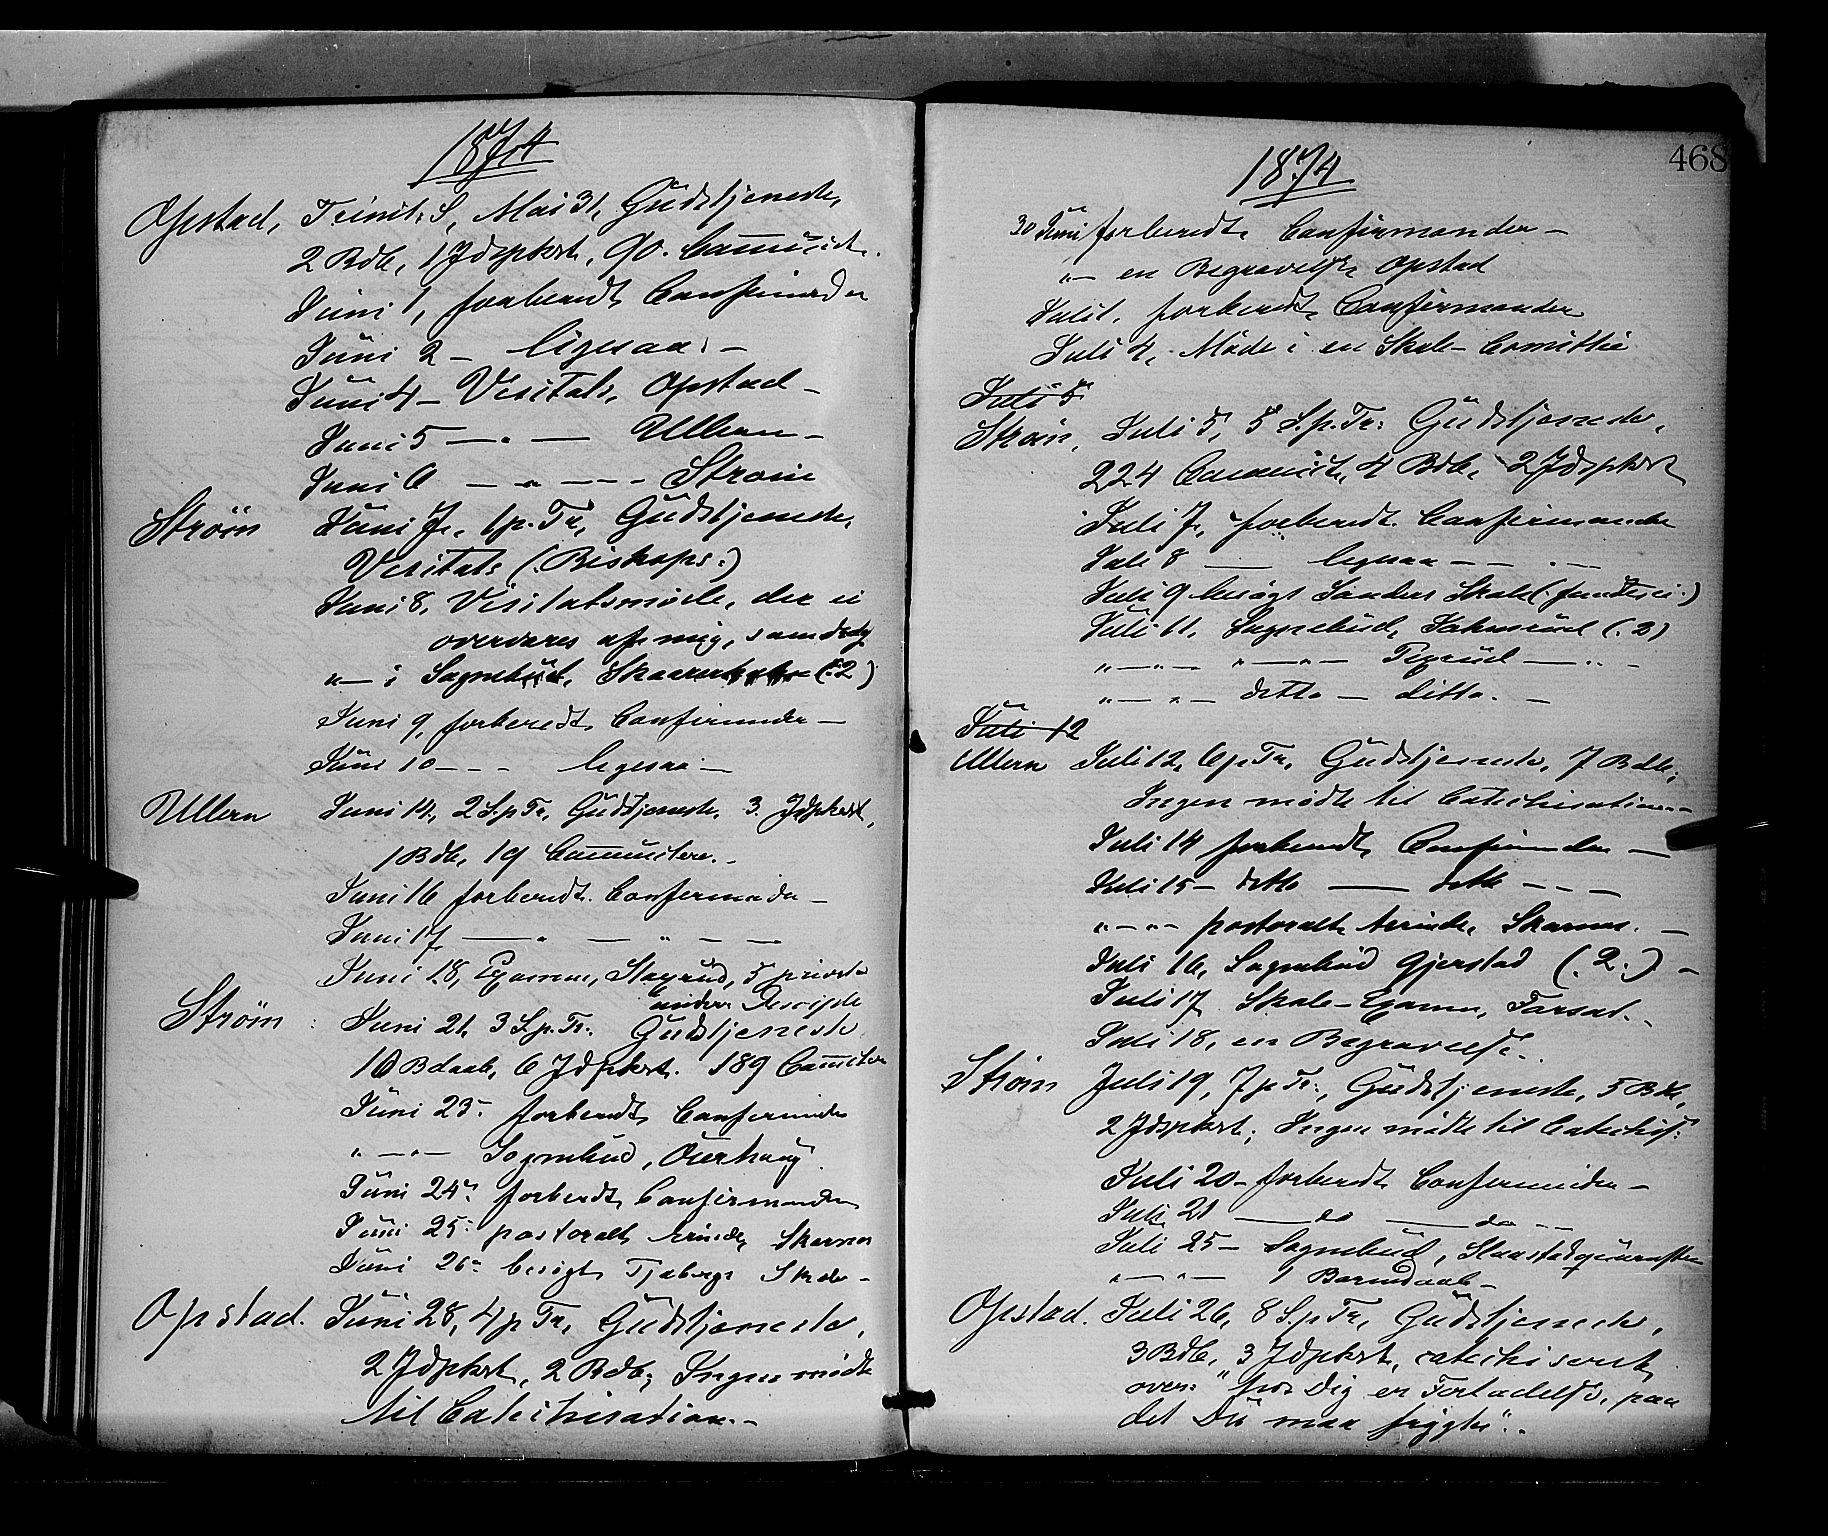 1874
Opstad, Trinit. S, Mai 31, Gudstjeneste,
2 Bdb, 1 Jdspkrt, 90. Communict.
Juni 1, forberedt Confirmander
Juni 2 - ligesaa. -
Juni 4 - Visitats, Opstad -
Juni 5 — " — Ullern -
Juni 6 — " — - - Strøm
Strøm Juni 7, 1 p. Tr, Gudstjeneste,
Visitats (: Biskops :)
Juni 8, Visitatsmøde, der ei
overværes af mig,
" — i Sognebud, (: 2)
Juni 9, forberedt Confirmander —
Juni 10 - - - ligesaa —
Ullern Juni 14, 2 S. p Tr, Gudstjeneste, 3 Jdspkrt,
1 Bdb, 19 Communictere. -
Juni 16 forberedt Confirmander -
Juni 17 — " — " — — -
Juni 18, Examen, Stagrud, 5 private
under Discipde
Strøm : Juni 21, 3 S. p. Tr: Gudstjeneste
10 Bdaab, 6 Jdspkrt. 189 Commctere
Juni 23. forberedt Confirmander
" — " — Sognebud, Ouerhaug
Juni 24. forberedt Confirmander
Juni 25. pastoralt Ærinde, Skarnes
Juni 26. besøgt Tjaberg Skole -
Opstad. Juni 28, 4 p Tr, Gudstjeneste,
2 Jdspkrt, 2 Bdb; Ingen mødte
til Catechisation. -
1874
468
30 Juni forberedt Confirmander -
" — en Begravelse Opstad
Juli 1. forberedt Confirmander
Juli 4, Møde i en Skole-Comittee
Juli 5
Strøm, Juli 5, 5 S. p. Tr: Gudstjeneste,
224 Communict, 4 Bdb, 2 Jdspkrt
Juli 7, forberedt Confirmander
Juli 8 — ligesaa - - . - -
Juli 9 besøgt Sanders Skole
Juli 11, Sognebud, (. 2)
" — " — " — " — —
" — " — detto — ditto. -
Juli 12
Ullern Juli 12, 6 p Tr, Gudstjeneste, 7 Bdb;
Ingen mødte til Catechisation -
Juli 14 forberedt Confirmander —
Juli 15 - detto — detto - - -
" - " - pastoralt Ærinde, Skarnes. -
Juli 16, Sognebud Gjerstad (. 2 .) -
Juli 17 Skole-Examen, Farsat. -
Juli 18, en Begravelse.
Strøm Juli 19, 7 p Tr:, Gudstjeneste, 5 Bdb,
2 Jdspkrt; Ingen mødte til Catechis:
Juli 20 - forberedt Confirmander -
Juli 21 — do — do - -
Juli 25 - Sognebud,
" — " — 1 Barnedaab -
Opstad. Juli 26, 8 S. p Tr, Gudstjeneste,
3 Bdb, 3 Jdspkrt, catechiserede
over: "hos Dig er Forladelse, paa
det Du maa frygtes". .